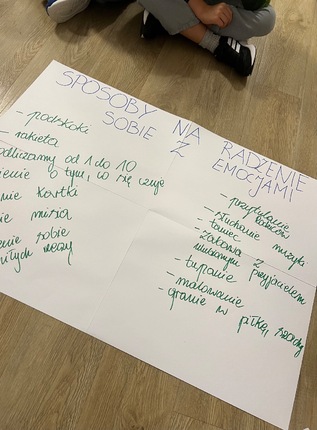 SPOSOBY NA RADZENIE
SOBIE Z EMOCJAMI
- podskoki
- rakieta
odliczamy od 1 do 10
ienie o tym, co się czuje
nie kartka
ie misia
enie sobie
miłych rzeczy
- przytulanie
- słuchanie muzyki
- taniec
- zabawa z
przyjacielem
- tupanie
- malowanie
- granie w piłkę, szachy